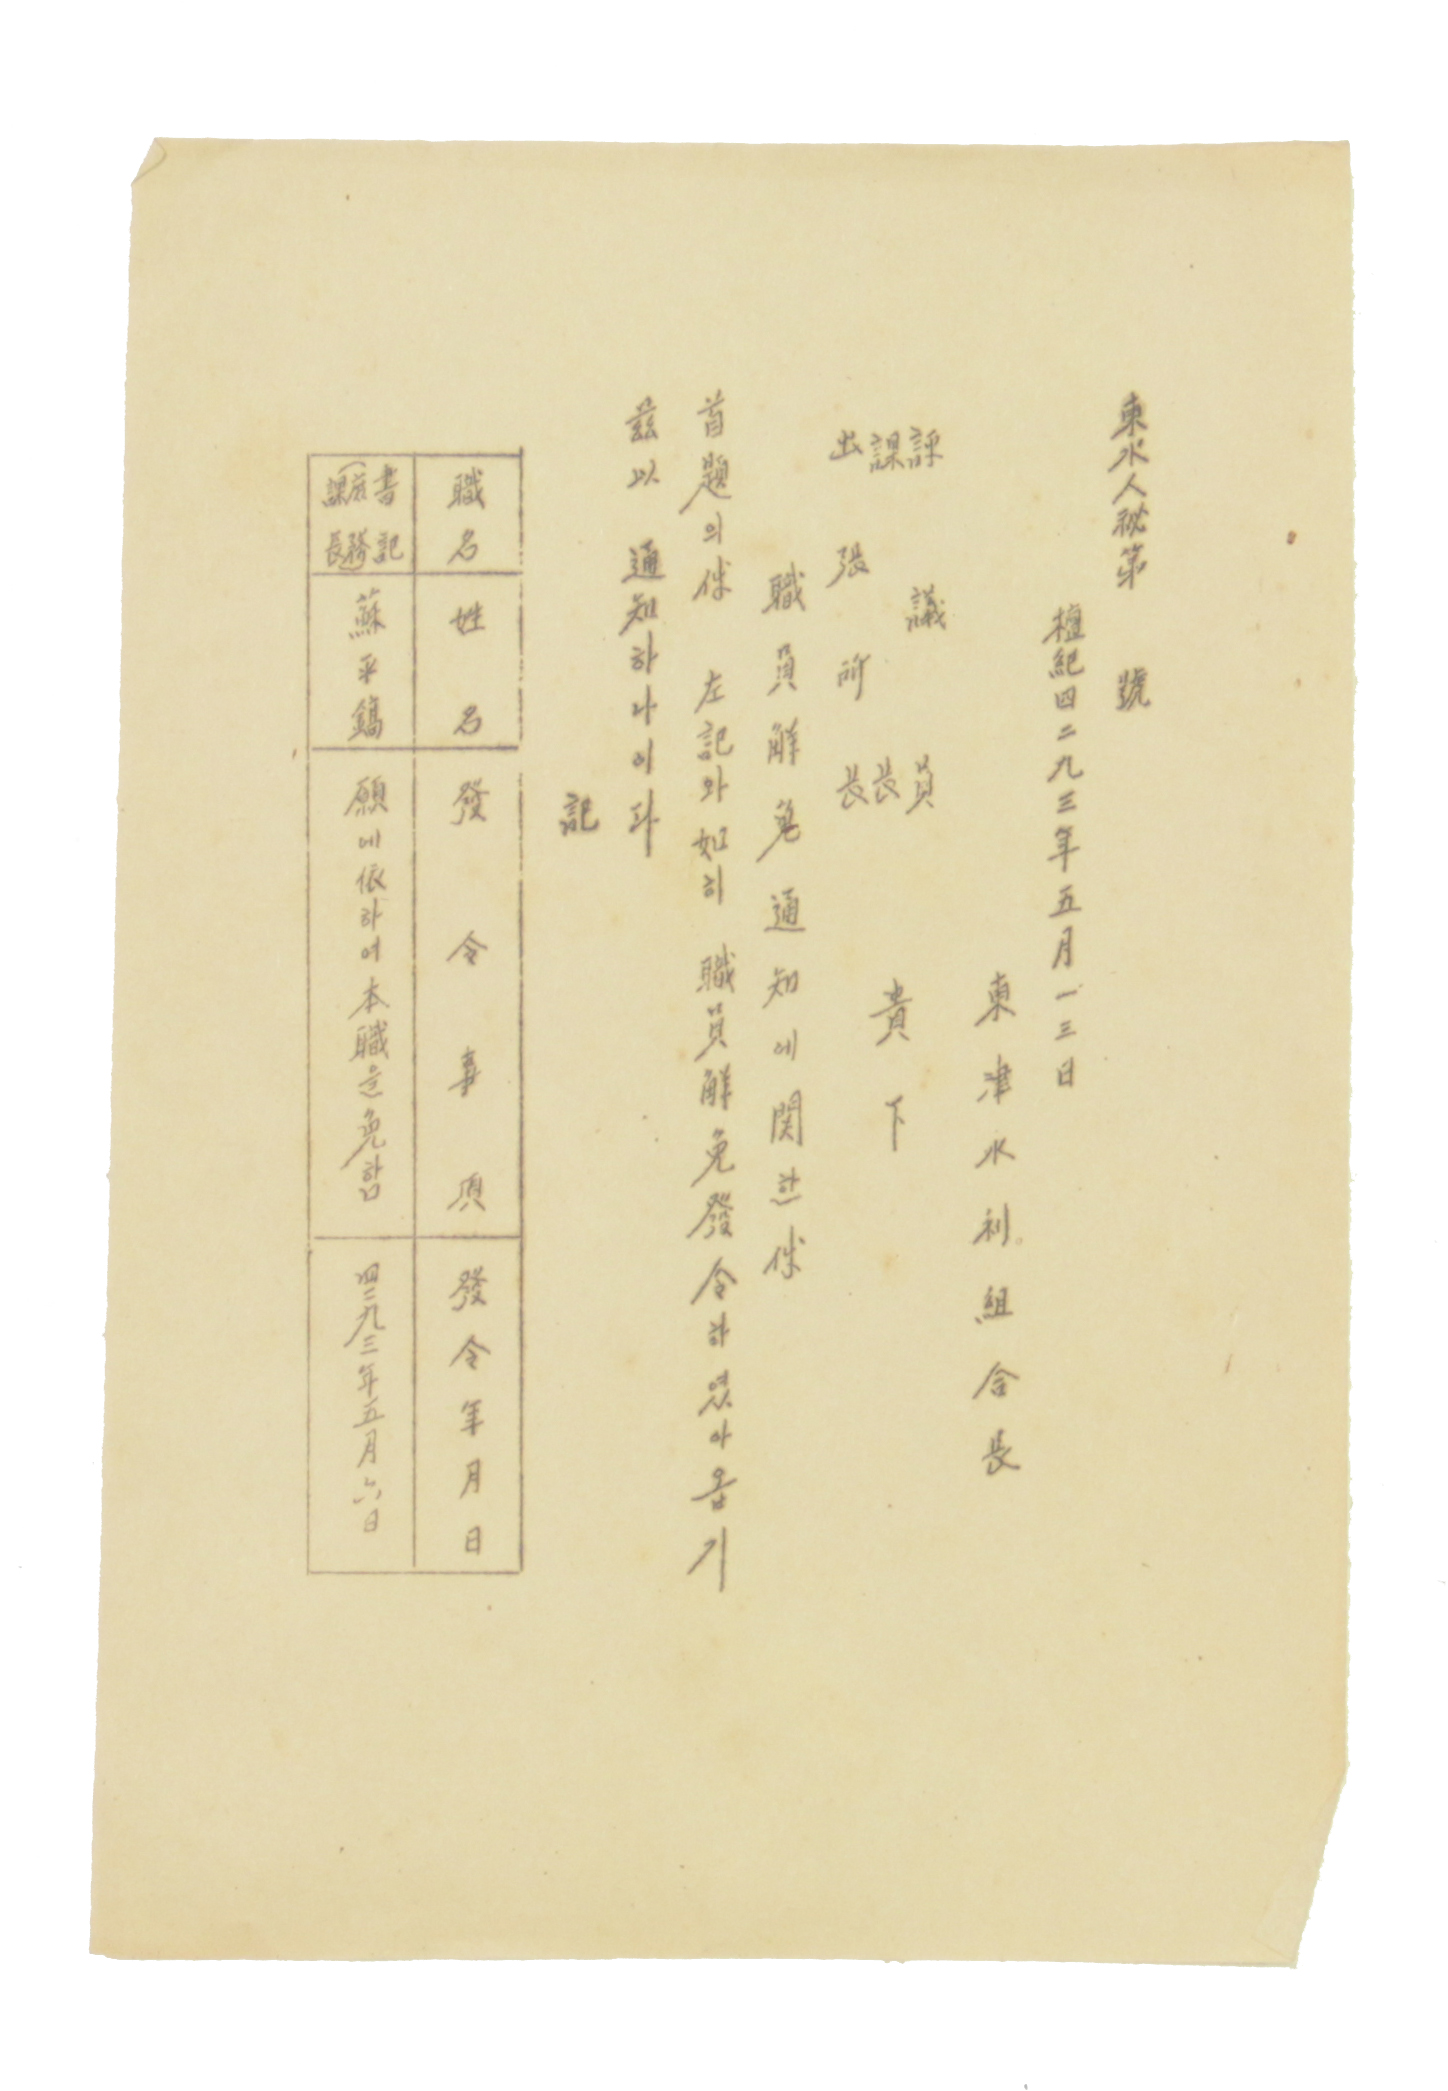 東水人秘第　號
檀紀四二九三年五月一三日
東津水利組合長
評議員
課長
出張所長
貴下
職員解免通知에関한件
首題의件 左記와如히 職員解免發令하였아옵기
玆以 通知하나이다
記
職名
姓名
發令事項
發令年月日
書記
(庶務課長)
蘇平鎬
願에依하여本職을免함
四二九三年五月六日